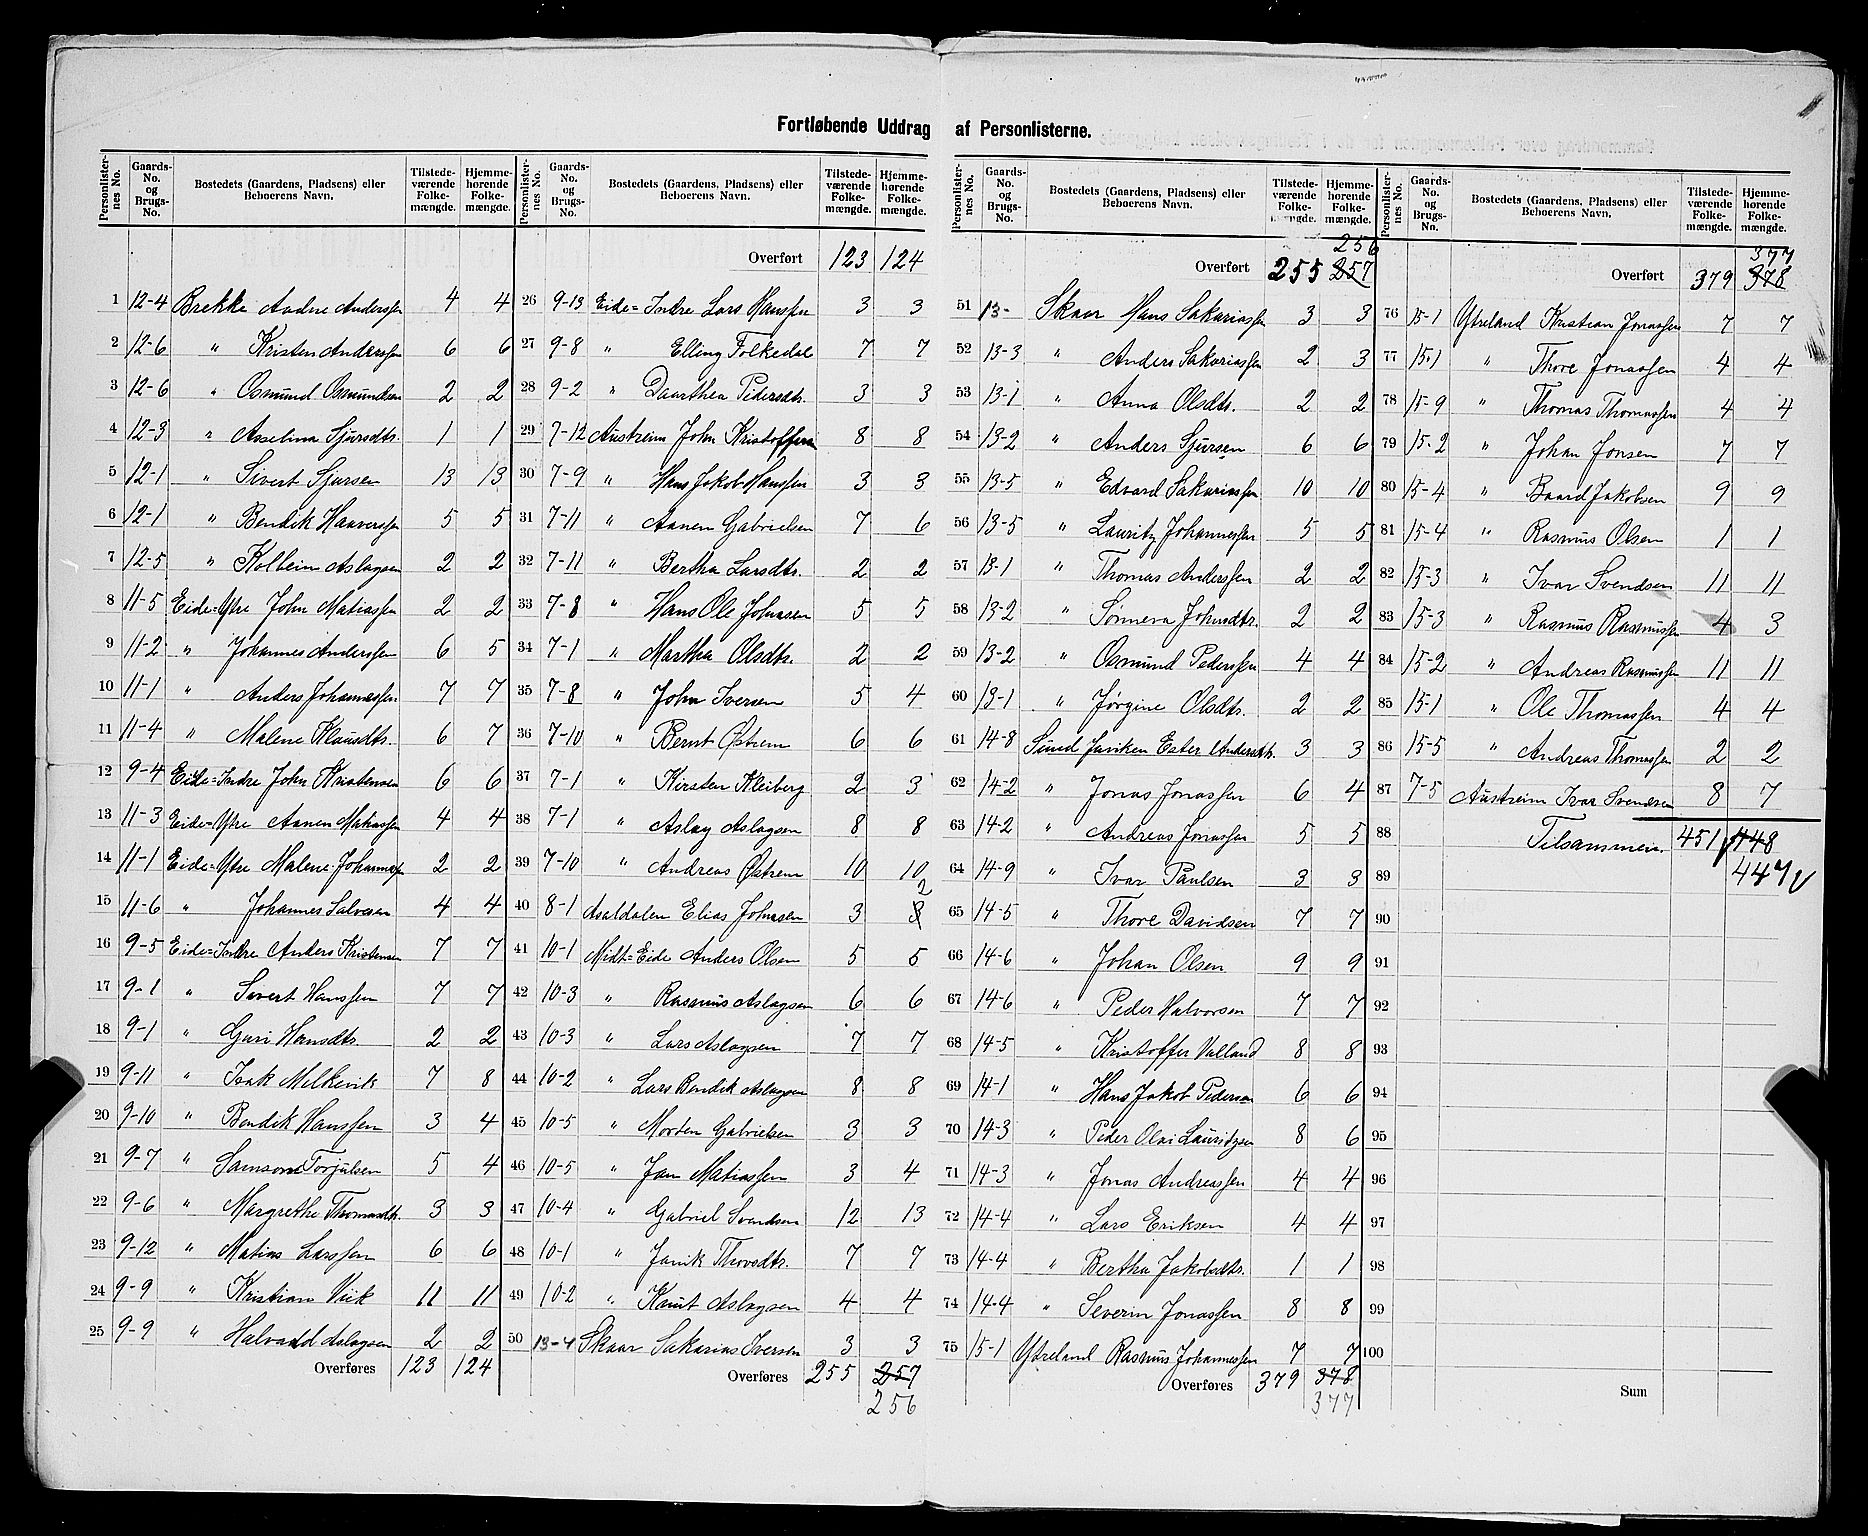 Fortløbende Uddrag af Personlisterne.
Personlister-nes No. Gaards-No. og Brugs-No. Bostedets (Gaardens, Pladsens) eller Beboerens Navn. Tilstede-værende Folke-mængde. Hjemme-hørende Folke-mængde.
1 12-4 Brekke Andne Anderssen 4 4
2 12-6 " Kristen Anderssen 6 6
3 12-6 " Osmund Osmundsen 2 2
4 12-3 " Asselina Sjursdtr. 1 1
5 12-1 " Sivert Sjursen 13 13
6 12-1 " Bendik Haaverssen 5 5
7 12-5 " Kolbein Aslagsen 2 2
8 11-5 Eide=Ytre John Matiassen 2 2
9 11-2 " Johannes Anderssen 6 5
10 11-1 " Anders Johannessen 7 7
11 11-4 " Malene Klausdtr. 6 7
12 9-4 Eide=Indre John Kristensen 6 6
13 11-3 Eide=Ytre Aanen Matiassen 4 4
14 11-1 Eide=Ytre Malene Johannessen 2 2
15 11-6 " Johannes Salvesen 4 4
16 9-5 Eide=Indre Anders Kristensen 7 7
17 9-1 " Sivert Hanssen 7 7
18 9-1 " Guri Hansdtr. 2 2
19 9-11 " Isak Melkevik 7 8
20 9-10 " Bendik Hanssen 3 4
21 9-7 " Samson Torjulsen 5 4
22 9-6 " Margrethe Thomasdtr. 3 3
23 9-12 " Matias Larssen 6 6
24 9-9 " Kristian Viik 11 11
25 9-9 " Halvard Aslagsen 2 2
Overføres 123 124
Personlister-nes No. Gaards-No. og Brugs-No. Bostedets (Gaardens, Pladsens) eller Beboerens Navn. Tilstede-værende Folke-mængde. Hjemme-hørende Folke-mængde.
Overført 123 124
26 9-13 Eide=Indre Lars Hanssen 3 3
27 9-8 " Elling Folkedal 7 7
28 9-2 " Daarthea Pedersdtr. 3 3
29 7-12 Austreim John Kristoffersen 8 8
30 7-9 " Hans Jakob Hanssen 3 3
31 7-11 " Aanen Gabrielsen 7 6
32 7-11 " Bertha Larsdtr. 2 2
33 7-8 " Hans Ole Johnsen 5 5
34 7-1 " Martha Olsdtr. 2 2
35 7-8 " John Iversen 5 4
36 7-10 " Bernt Østrem 6 6
37 7-1 " Kirsten Kleiberg 2 3
38 7-1 " Aslag Aslagsen 8 8
39 7-10 " Andreas Østrem 10 10
40 8-1 Asaldalen Elias Johnsen 3 3 2
41 10-1 Midt=Eide Anders Olsen 5 5
42 10-3 " Rasmus Aslagsen 6 6
43 10-3 " Lars Aslagsen 7 7
44 10-2 " Lars Bendik Aslagsen 8 8
45 10-5 " Morten Gabrielsen 3 3
46 10-5 " Jan Matiassen 3 4
47 10-4 " Gabriel Svendsen 12 13
48 10-1 " Janik Thorsdtr. 7 7
49 10-2 " Knut Aslagsen 4 4
50 13-4 Skaar Sakarias Iversen 3 3
Overføres 255 257
256
Personlister-nes No. Gaards-No. og Brugs-No. Bostedets (Gaardens, Pladsens) eller Beboerens Navn. Tilstede-værende Folke-mængde. Hjemme-hørende Folke-mængde.
256
Overført 255 257
51 13- Skaar Hans Sakariassen 3 3
52 13-3 " Anders Sakariassen 2 3
53 13-1 " Anna Olsdtr. 2 2
54 13-2 " Anders Sjursen 6 6
55 13-5 " Edvard Sakariassen 10 10
56 13-5 " Lauritz Johannessen 5 5
57 13-1 " Thomas Anderssen 2 2
58 13-2 " Sønneva Johnsdtr. 2 2
59 13-2 " Osmund Pederssen 4 4
60 13-1 " Jørgine Olsdtr. 2 2
61 14-8 Sund Janiken Ester Andersdtr. 3 3
62 14-2 " Jonas Jonassen 6 4
63 14-2 " Andreas Jonassen 5 5
64 14-9 " Ivar Paulsen 3 3
65 14-5 " Thore Davidsen 7 7
66 14-6 " Johan Olsen 9 9
67 14-6 " Peder Halvorsen 7 7
68 14-5 " Kristoffer Valland 8 8
69 14-1 " Hans Jakob Pedersen 6 6
70 14-3 " Peder Olai Lauritzsen 8 6
71 14-3 " Jonas Andreassen 4 4
72 14-4 " Lars Eriksen 4 4
73 14-4 " Bertha Jakobsdtr. 1 1
74 14-4 " Severin Jonassen 8 8
75 15-1 Ytreland Rasmus Johannessen 7 7
Overføres 379 378
377
Personlister-nes No. Gaards-No. og Brugs-No. Bostedets (Gaardens, Pladsens) eller Beboerens Navn. Tilstede-værende Folke-mængde. Hjemme-hørende Folke-mængde.
377
Overført 379 378
76 15-1 Ytreland Kristian Jonassen 7 7
77 15-1 " Thore Jonassen 4 4
78 15-9 " Thomas Thomassen 4 4
79 15-2 " Johan Jonsen 7 7
80 15-4 " Baard Jakobsen 9 9
81 15-4 " Rasmus Olsen 1 1
82 15-3 " Ivar Svendsen 11 11
83 15-3 " Rasmus Rasmussen 4 3
84 15-2 " Andreas Rasmussen 11 11
85 15-1 " Ole Thomassen 4 4
86 15-5 " Andreas Thomassen 2 2
87 7-5 Austreim Ivar Svendsen 8 7
88 Tilsammen 451 448
89 447
90
91
92
93
94
95
96
97
98
99
100
Sum